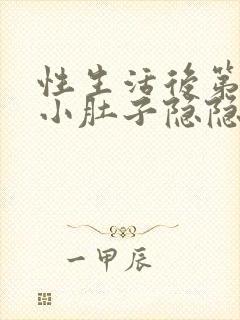 性生活後第
小肚子隐隐
一甲辰